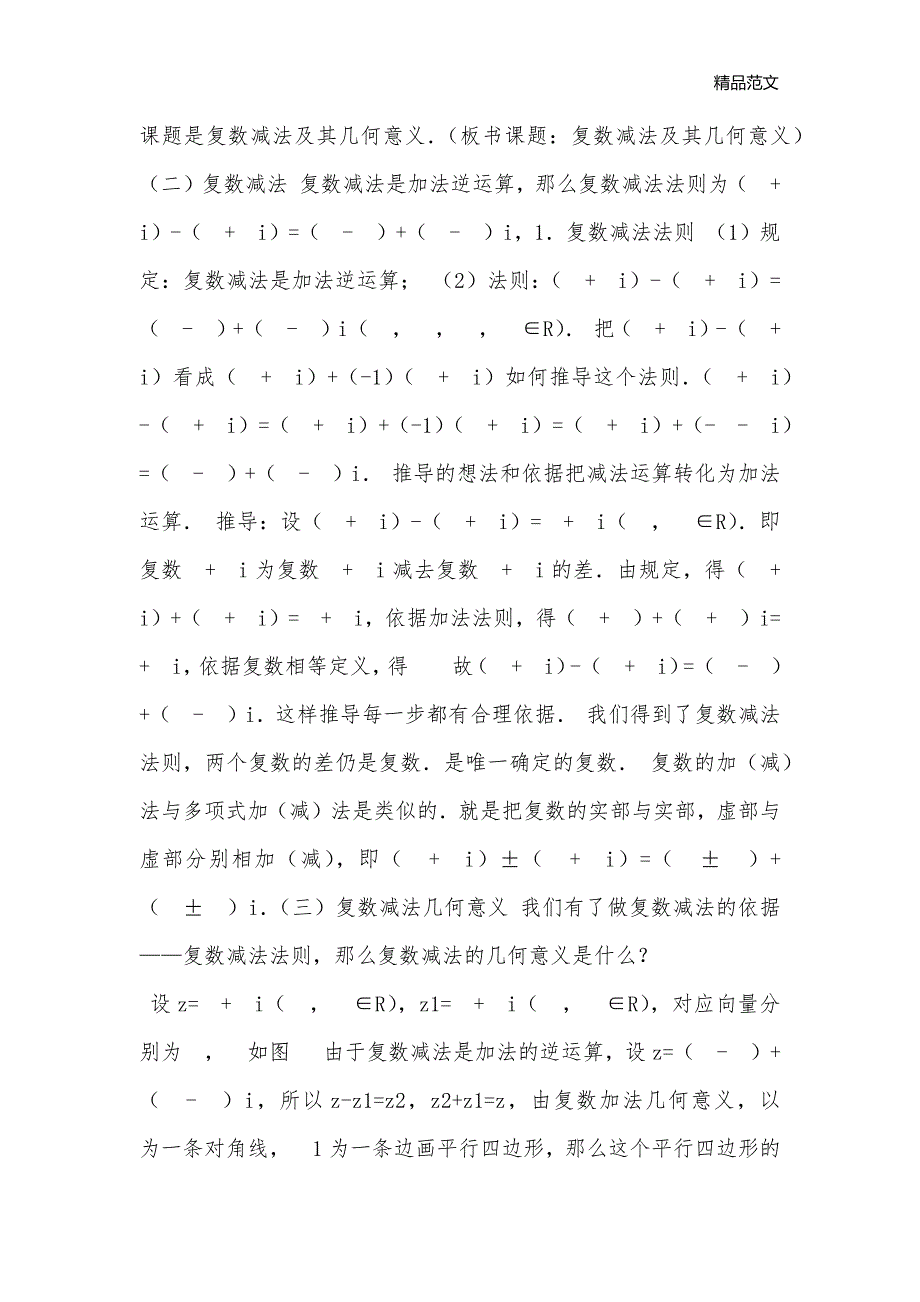 精品范文
课题是复数减法及其几何意义．（板书课题：复数减法及其几何意义）
（二）复数减法 复数减法是加法逆运算，那么复数减法法则为（ +
i）-（ + i）=（ - ）+（ - ）i，1．复数减法法则 （1）规
定：复数减法是加法逆运算； （2）法则：（ + i）-（ + i）=
（ - ）+（ - ）i（ ， ， ， ∈R）． 把（ + i）-（ +
i）看成（ + i）+（-1）（ + i）如何推导这个法则．（ + i）
-（ + i）=（ + i）+（-1）（ + i）=（ + i）+（- - i）
=（ - ）+（ - ）i． 推导的想法和依据把减法运算转化为加法
运算． 推导：设（ + i）-（ + i）= + i（ ， ∈R）．即
复数 + i为复数 + i减去复数 + i的差．由规定，得（ +
i）+（ + i）= + i，依据加法法则，得（ + ）+（ + ）i=
+ i，依据复数相等定义，得 故（ + i）-（ + i）=（ - ）
+（ - ）i．这样推导每一步都有合理依据． 我们得到了复数减法
法则，两个复数的差仍是复数．是唯一确定的复数． 复数的加（减）
法与多项式加（减）法是类似的．就是把复数的实部与实部，虚部与
虚部分别相加（减），即（ + i）±（ + i）=（ ± ）+
（ ± ）i．（三）复数减法几何意义 我们有了做复数减法的依据
——复数减法法则，那么复数减法的几何意义是什么？
设z= + i（ ， ∈R），z1= + i（ ， ∈R），对应向量分
别为 ， 如图 由于复数减法是加法的逆运算，设z=（ - ）+
（ - ）i，所以z-z1=z2，z2+z1=z，由复数加法几何意义，以
为一条对角线， 1为一条边画平行四边形，那么这个平行四边形的